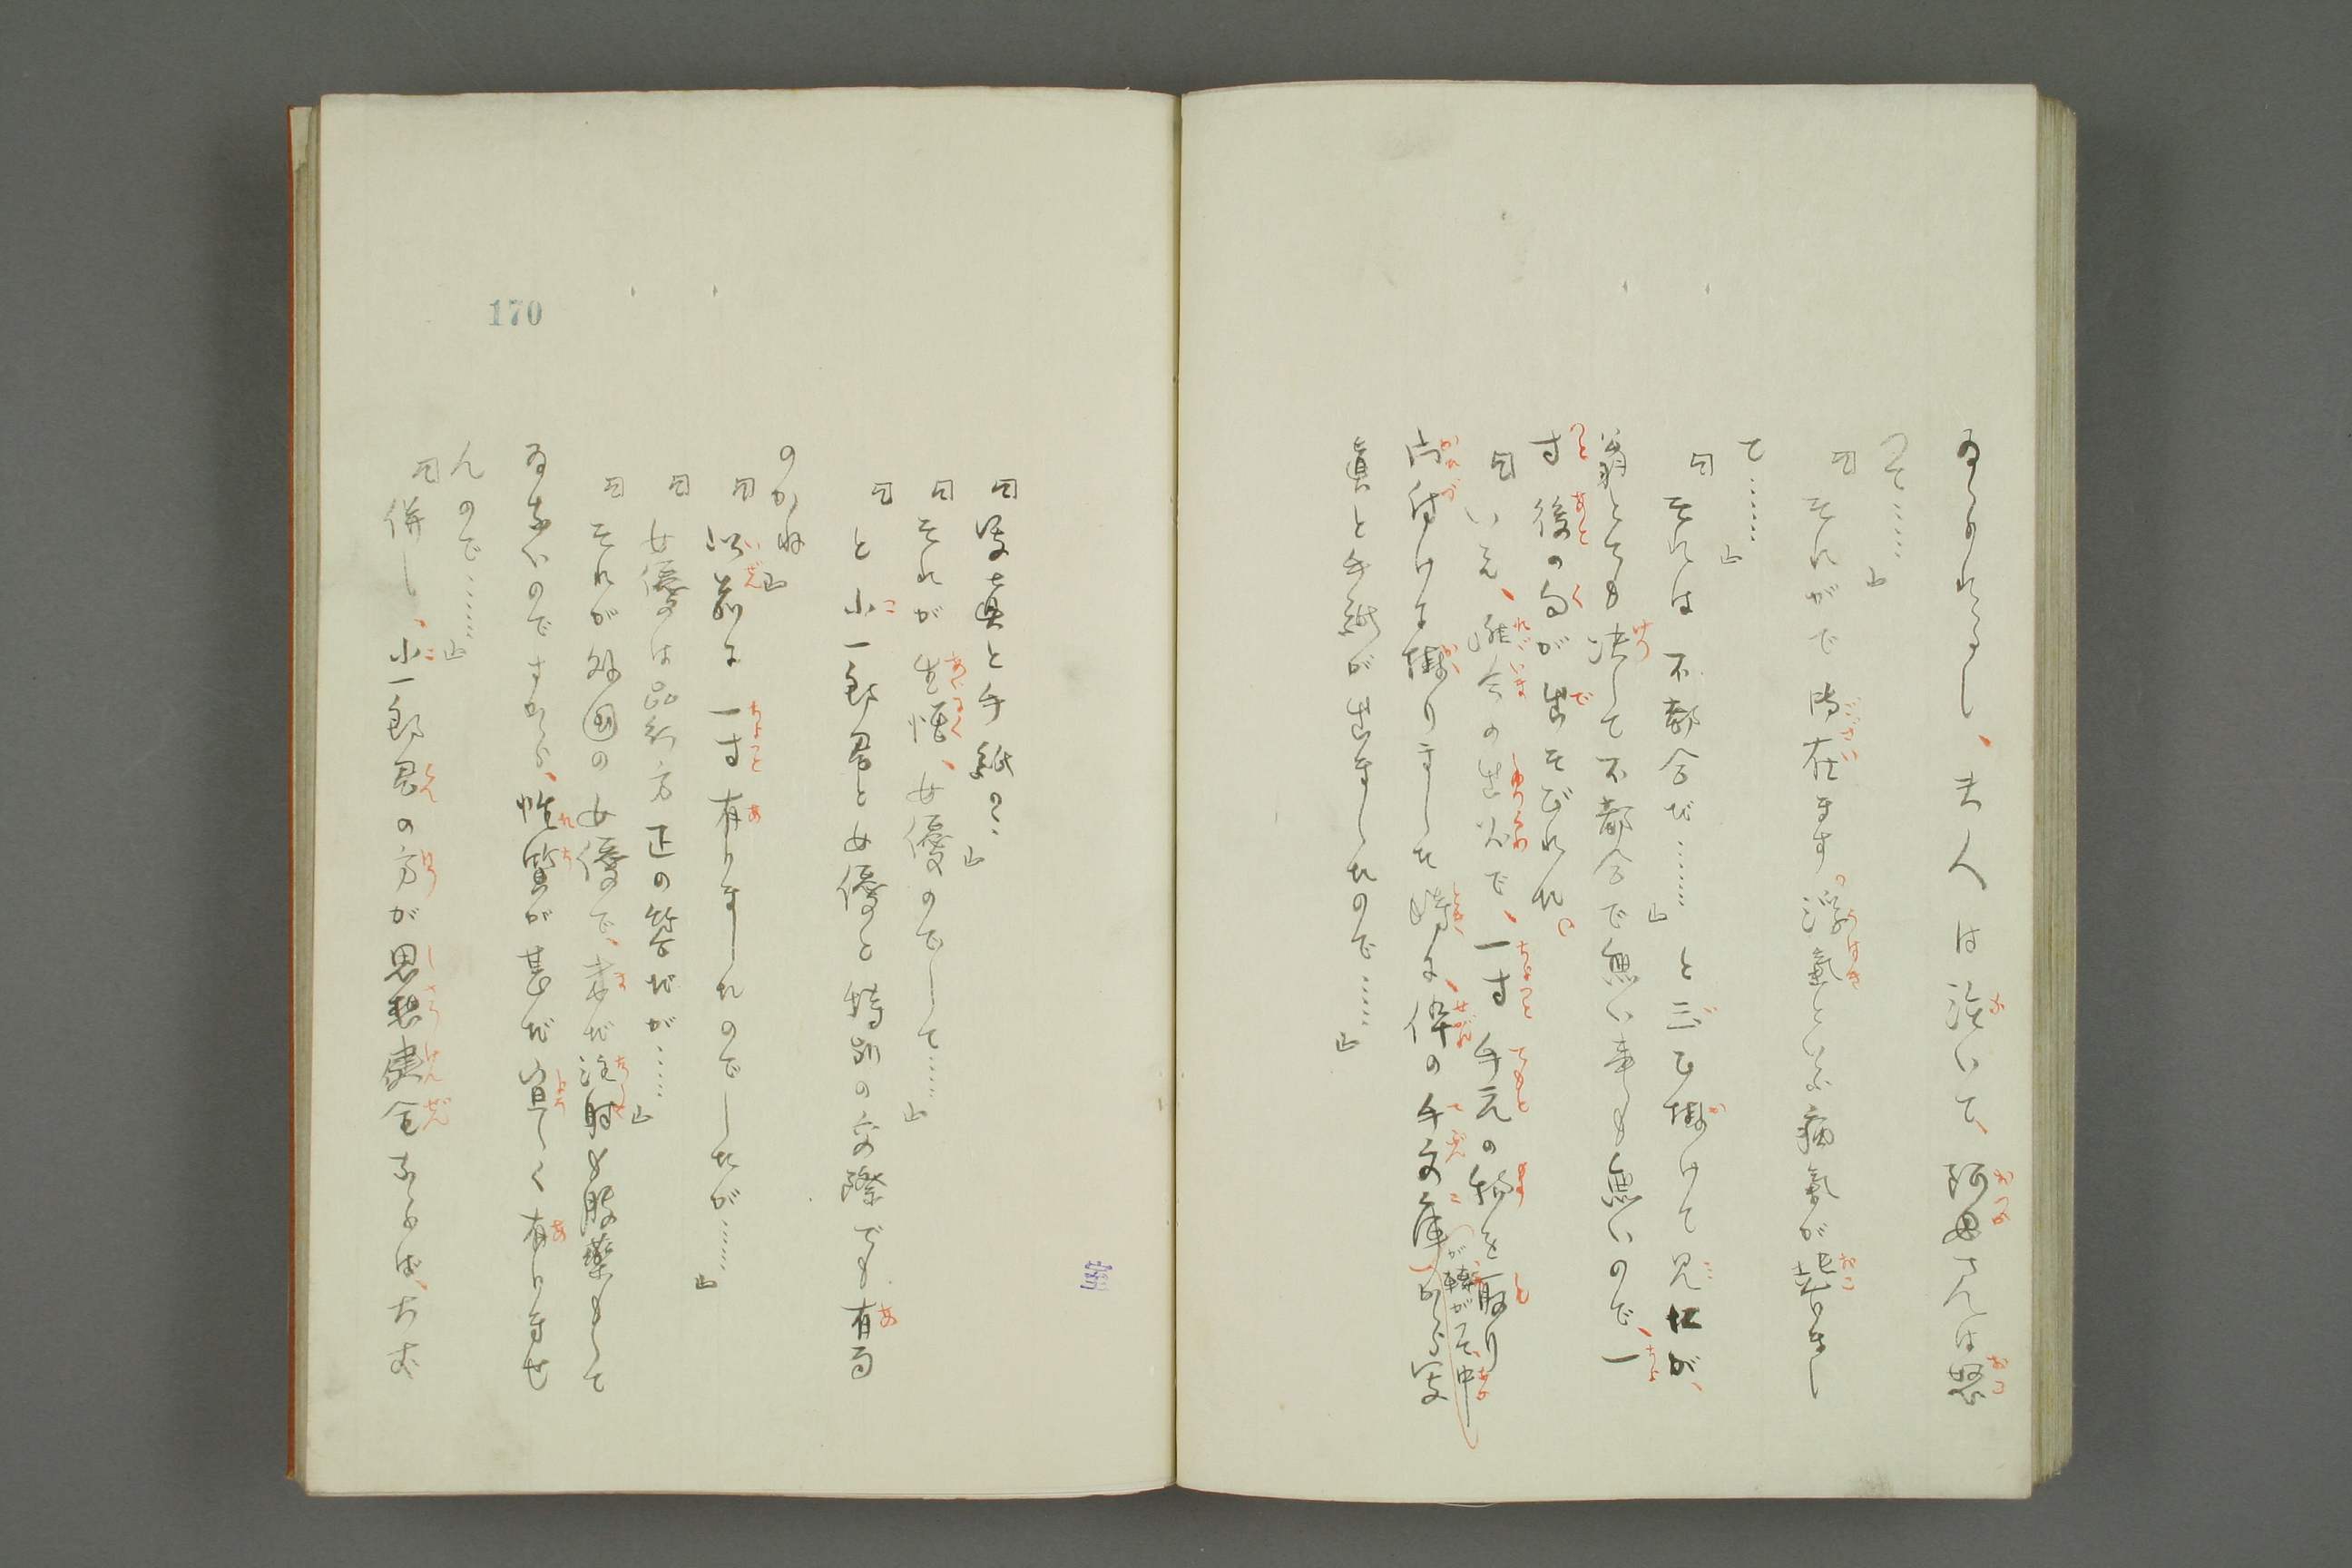 ゐられるし、夫人は泣いて、阿母さんは怒
つて……」
「それがで御在ます。浮氣といふ病氣が起きまし
て……」
「それは不都合だ……」と云ひ掛けて見たが、
翁とても決して不都合で無い事も無いので、一
寸後の句が出そびれた。
「いえ、唯今の出火で、一寸手元の物を取り
片付けに掛りました時に、倅の手文庫から寫
が轉がて中
眞と手紙が出ましたので……」
「寫眞と手紙？」
「それが生憎、女優のでして……」
「と小一郎君と女優と特別の交際でも有る
のかね」
「以前に一寸有りましたのでしたが……」
「女優は品行方正の筈だが……」
「それが外國の女優で、まだ注射も服藥もして
ゐないのですから、性質が甚だ宜しく有りませ
んので……」
「併し、小一郎君の方が思想健全ならば、大丈
170